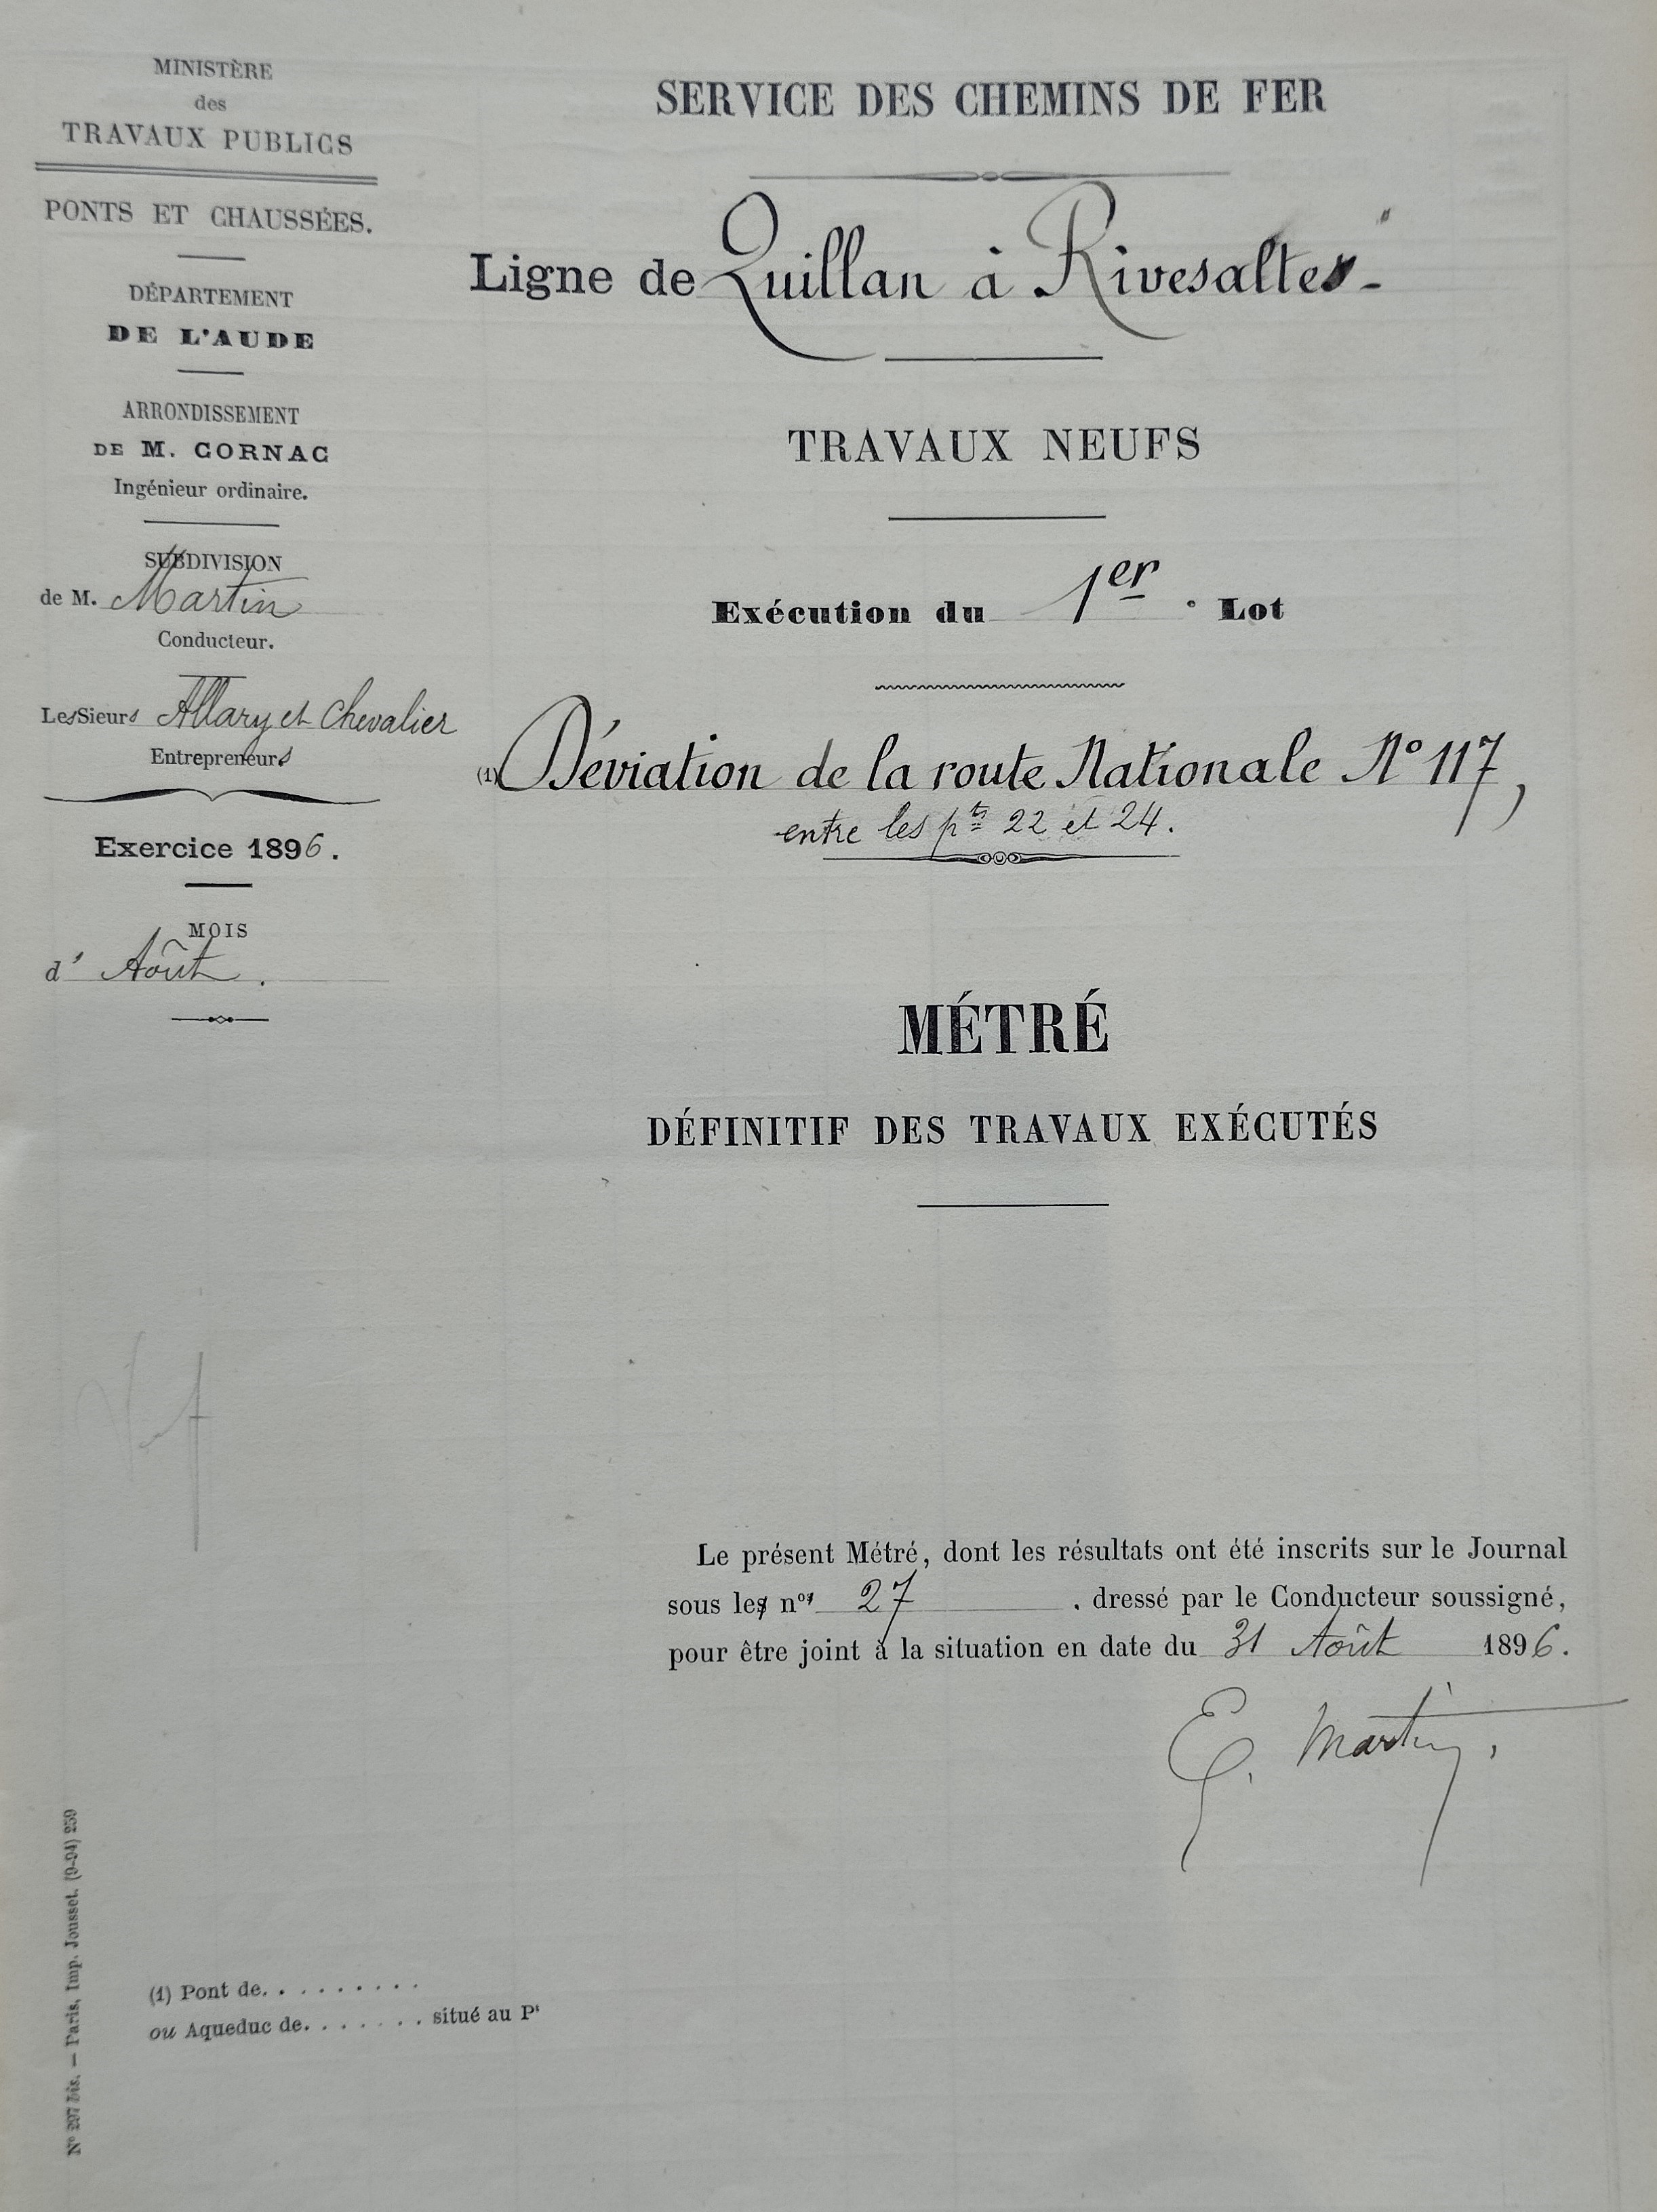 MINISTÈRE
des
TRAVAUX PUBLICS
PONTS ET CHAUSSÉES.
DÉPARTEMENT
DE L'AUDE
ARRONDISSEMENT
DE M. CORNAC
Ingénieur ordinaire.
SUBDIVISION
de M. Martin
Conducteur.
Les Sieurs Allary et Chevalier
Entrepreneurs
Exercice 1896.
MOIS
d' Août.
SERVICE DES CHEMINS DE FER
Ligne de Quillan à Rivesaltes-
TRAVAUX NEUFS
Exécution du 1er Lot
(1) Déviation de la route Nationale N° 117,
entre les pts 22 et 24.
MÉTRÉ
DÉFINITIF DES TRAVAUX EXÉCUTÉS
Le présent Métré, dont les résultats ont été inscrits sur le Journal
sous les nos 27 . dressé par le Conducteur soussigné,
pour être joint à la situation en date du 31 Août 1896.
E. Martin.
(1) Pont de. . . . . . . . .
ou Aqueduc de. . . . . . . situé au Pt
N° 297 bis. — Paris, Imp. Jousset. (9-94) 259